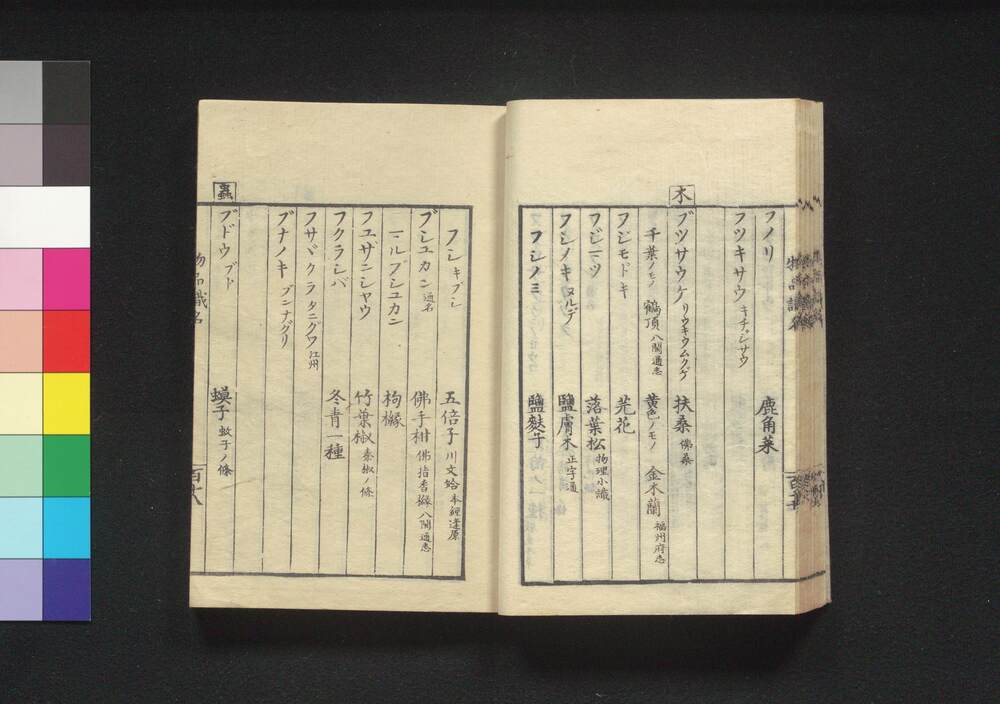 フノリ 鹿角菜
フツキサウ キチジサウ
木
ブツサウケ リウキウムクゲ 扶桑 佛桑
千葉ノモノ 鶴頂 八閩通志 黄色ノモノ 金木蘭 福州府志
フジモドキ 芫花
フジマツ 落葉松 物理小識
フシノキ ヌルデ 鹽膚木 正字通
フシノミ 鹽麩子
フシ キブシ 五倍子 川文蛤 本經逢原
ブシユカン 通名 佛手柑 佛指香櫞 八閩通志
マルブシユカン 枸櫞
フユザンシヤウ 竹葉椒 秦椒ノ條
フクラシバ 冬青一種
フサザクラ タニグワ 江州
ブナノキ ブンナグリ
蟲
ブドウ ブト 蟆子 蚊子ノ條
物品識名